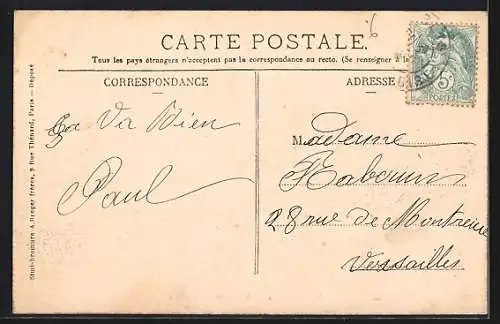 6
CARTE POSTALE.
Tous les pays étrangers n'acceptent pas la correspondance au recto. (Se renseigner à la
CORRESPONDANCE
ADRESSE
Ça Va Bien
Paul
Madame
Rabouin
28 rue de Montreuil
Versailles.
5
POSTES
A. Breger frères, 9 Rue Thénard, Paris — Déposé